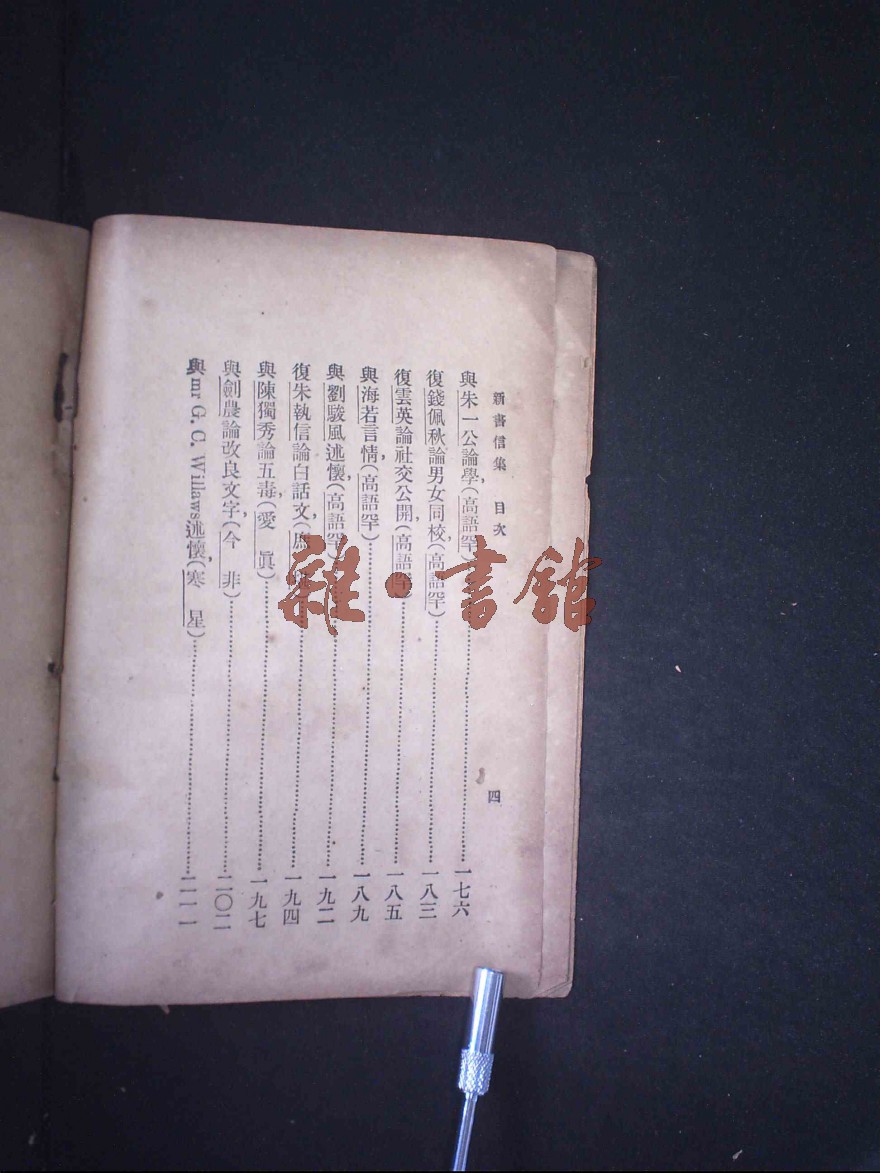 新書信集　目次
四
與朱一公論學，(高語罕)⋯⋯一七六
復錢佩秋論男女同校，(高語罕)⋯⋯一八三
復雲英論社交公開，(高語罕)⋯⋯一八五
與海若言情，(高語罕)⋯⋯一八九
與劉駿風述懷，(高語罕)⋯⋯一九二
復朱執信論白話文，⋯⋯一九四
與陳獨秀論五毒，(愛　眞)⋯⋯一九七
與劍農論改良文字，(今　非)⋯⋯二〇二
與mr G. C. Willaws述懷，(寒　星)⋯⋯二一一
雜·書館